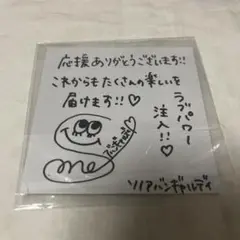 応援ありがとうございます!!
これからもたくさんの楽しいを
届けます!!♡
ラブパワー
注入!!♡
me
アバンギャルディ
ソノアバンギャルディ